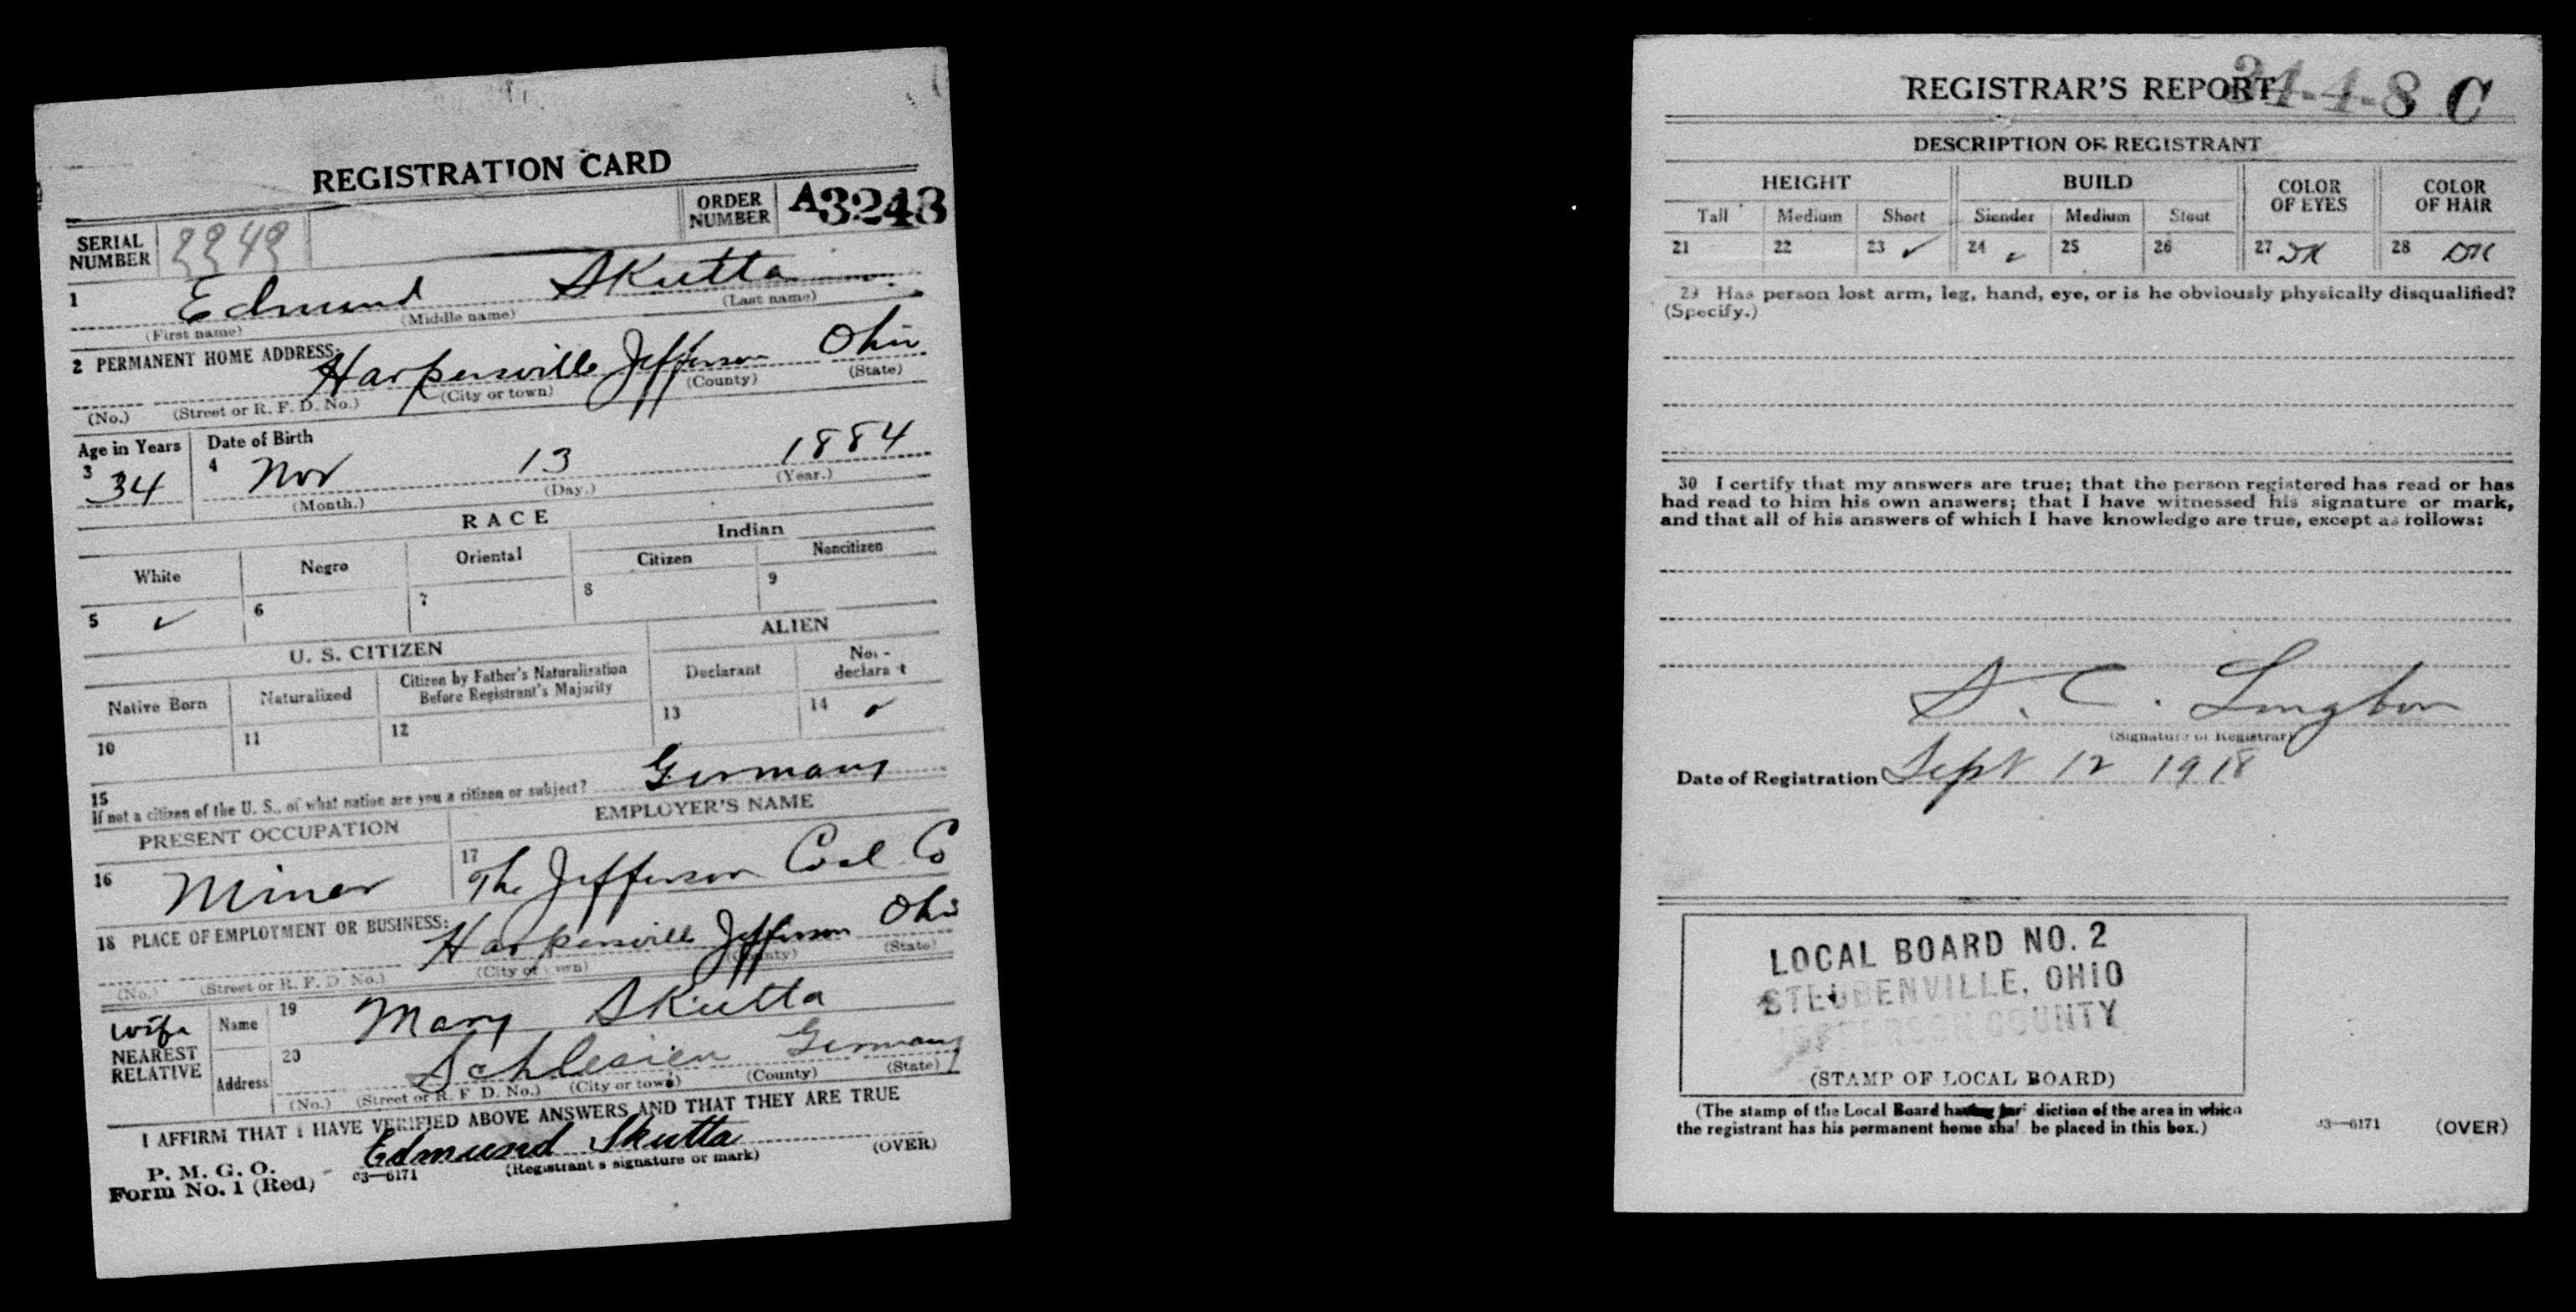 REGISTRATION CARD
SERIAL NUMBER 2249 ORDER NUMBER A3243
1 Edmund Skutta
(First name) (Middle name) (Last name)
2 PERMANENT HOME ADDRESS:
Harpersville Jefferson Ohio
(No.) (Street or R. F. D. No.) (City or town) (County) (State)
Age in Years Date of Birth
3 34 4 Nov 13 1884
(Month.) (Day.) (Year.)
RACE
White Negro Oriental Indian
Citizen Noncitizen
5 ✓ 6 7 8 9
U. S. CITIZEN ALIEN
Native Born Naturalized Citizen by Father's Naturalization Before Registrant's Majority Declarant Non-declarant
10 11 12 13 14 ✓
15 If not a citizen of the U. S., of what nation are you a citizen or subject? Germany
PRESENT OCCUPATION EMPLOYER'S NAME
16 Miner 17 The Jefferson Coal Co
18 PLACE OF EMPLOYMENT OR BUSINESS:
Harpersville Jefferson Ohio
(No.) (Street or R. F. D. No.) (City or town) (County) (State)
wife NEAREST RELATIVE
Name 19 Mary Skutta
Address 20 Schlesien Germany
(No.) (Street or R. F. D. No.) (City or town) (County) (State)
I AFFIRM THAT I HAVE VERIFIED ABOVE ANSWERS AND THAT THEY ARE TRUE
P. M. G. O.
Form No. 1 (Red) 03—6171 Edmund Skutta
(Registrant's signature or mark) (OVER)
REGISTRAR'S REPORT
34-4-8 C
DESCRIPTION OF REGISTRANT
HEIGHT BUILD COLOR OF EYES COLOR OF HAIR
Tall Medium Short Slender Medium Stout
21 22 23 ✓ 24 ✓ 25 26 27 DK 28 DK
29 Has person lost arm, leg, hand, eye, or is he obviously physically disqualified?
(Specify.)
30 I certify that my answers are true; that the person registered has read or has
had read to him his own answers; that I have witnessed his signature or mark,
and that all of his answers of which I have knowledge are true, except as follows:
S. C.
(Signature of Registrar)
Date of Registration Sept 12 1918
LOCAL BOARD NO. 2
STEUBENVILLE, OHIO
JEFFERSON COUNTY
(STAMP OF LOCAL BOARD)
(The stamp of the Local Board having jurisdiction of the area in which
the registrant has his permanent home shall be placed in this box.)
03—6171 (OVER)